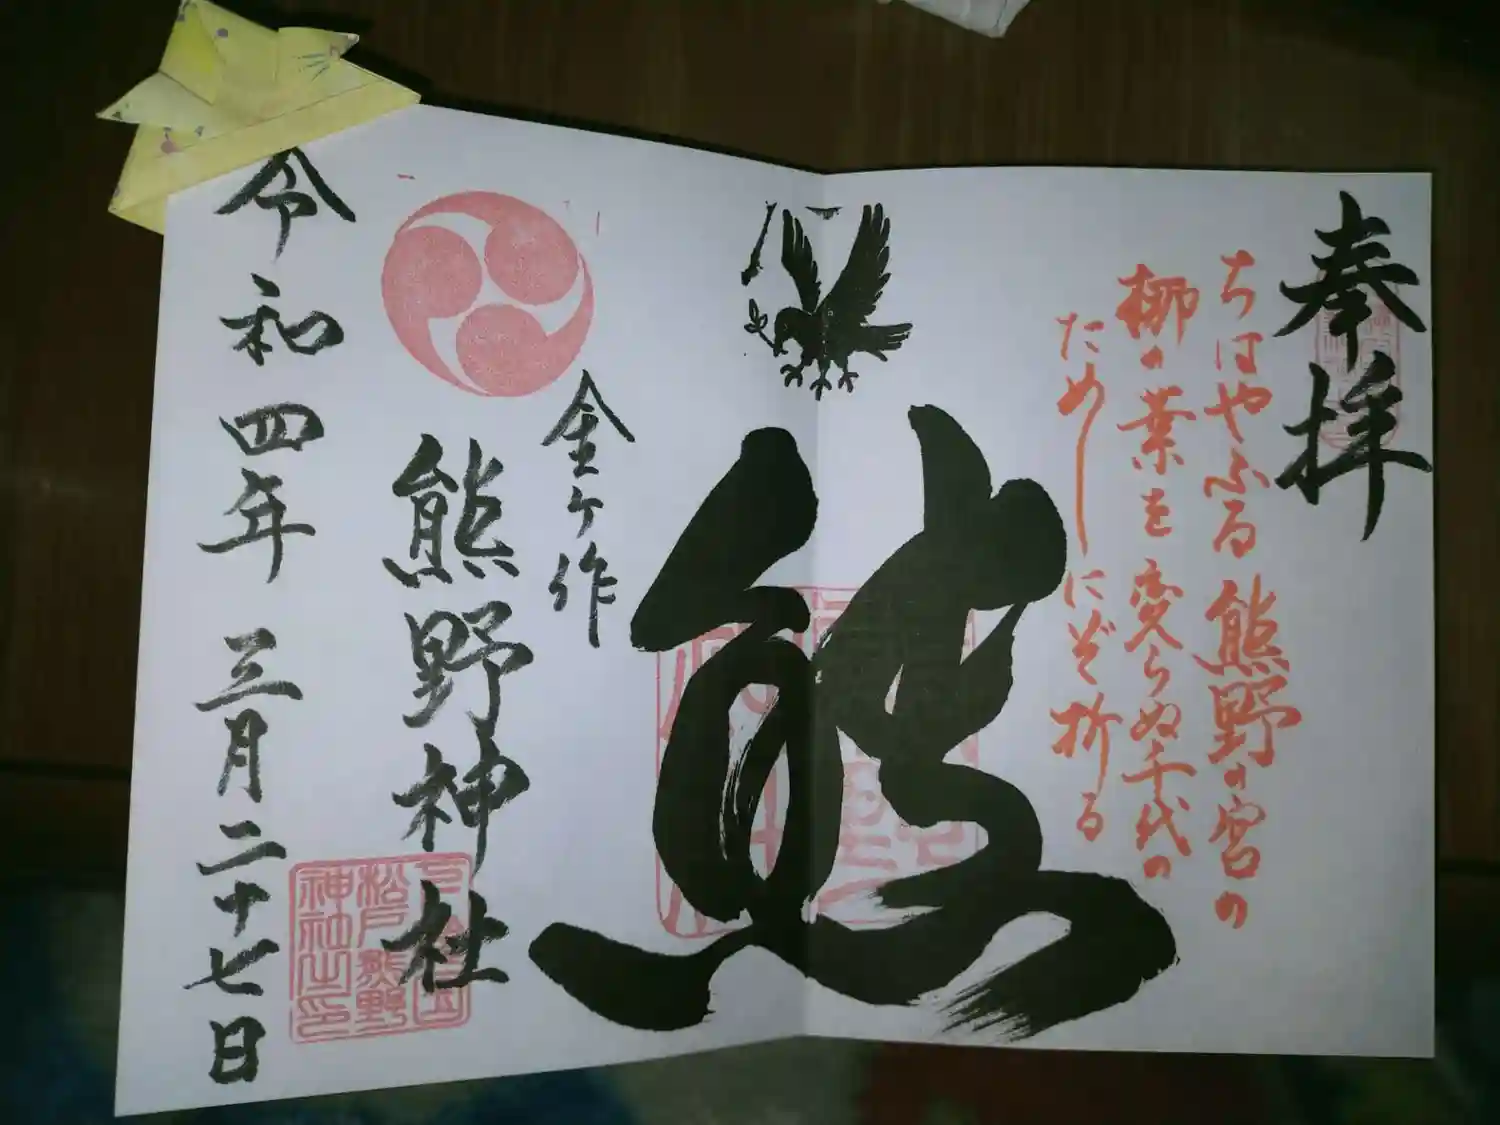 奉拝
ちはやふる熊野の宮の
梛の葉を変らぬ千代の
ためしにぞ折る
熊
金ヶ作
熊野神社
松戸熊野
神社之印
令和四年三月二十七日